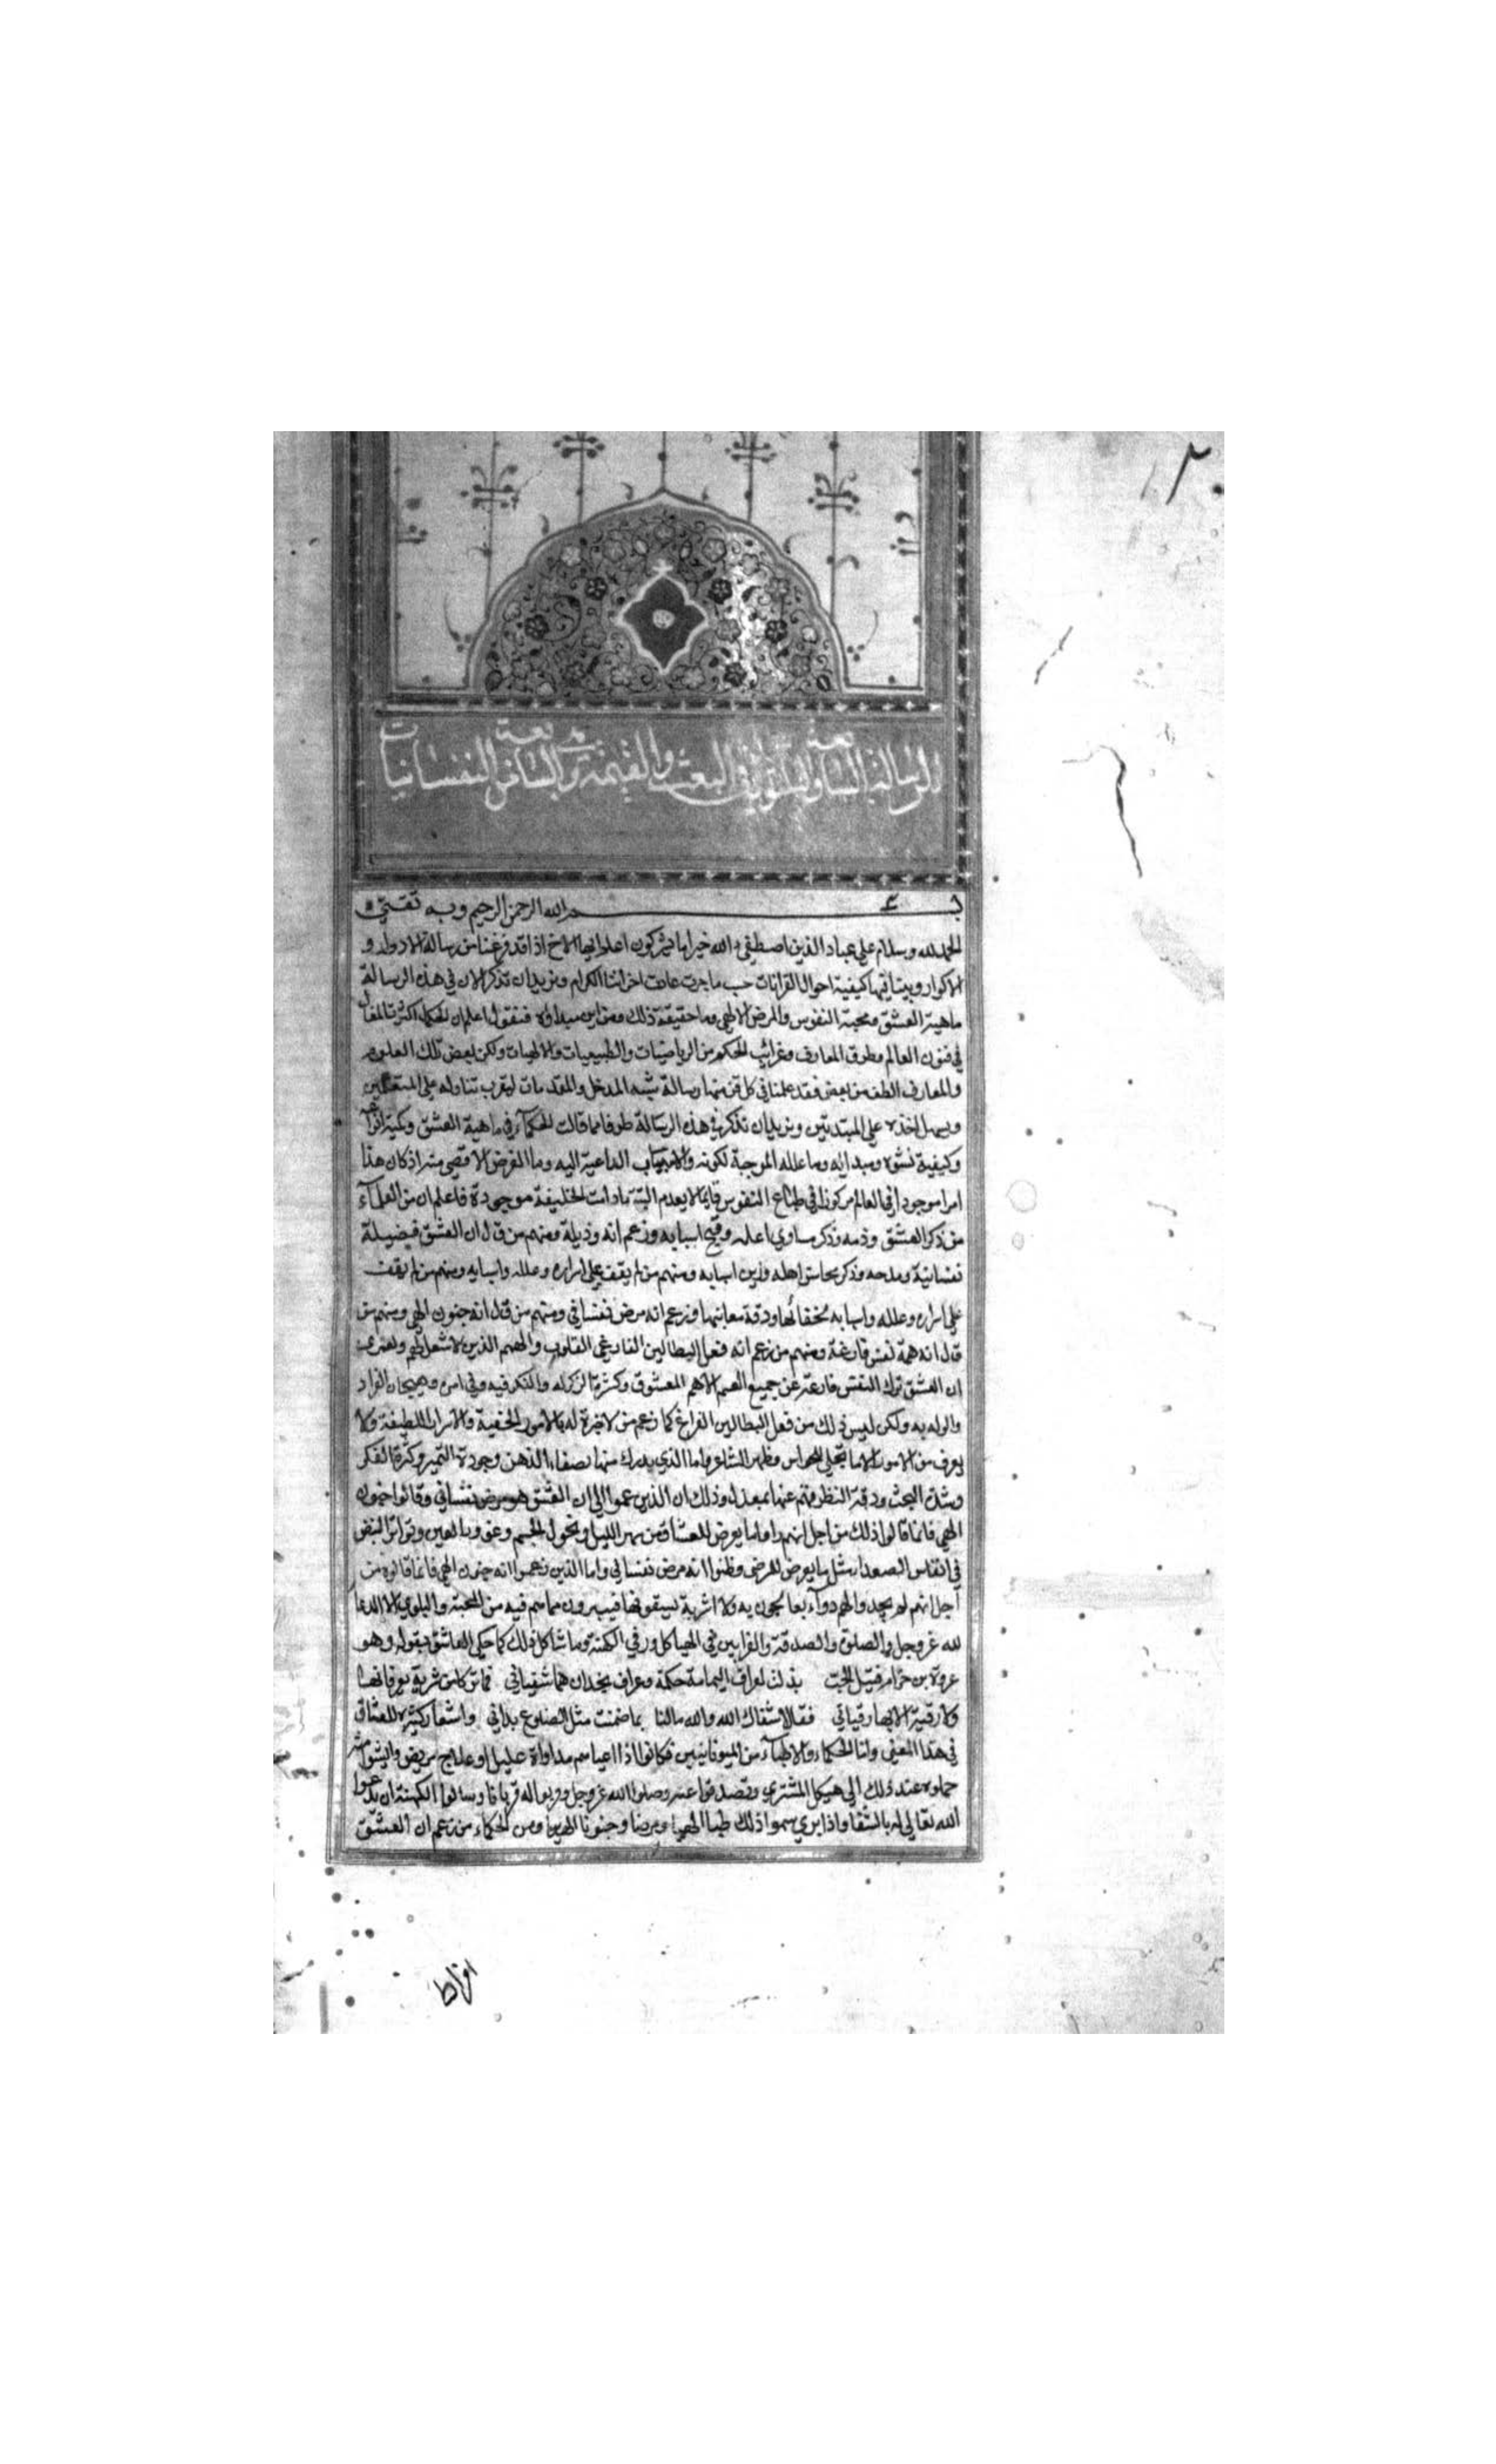 ٢
الرسالة السابعة والثلثون في البعث والقيمة وهي السابعة من النفسانيات
بسم الله الرحمن الرحيم وبه ثقتي
الحمد لله وسلام على عباده الذين اصطفى الله خير اما يشركون اعلم ايها الاخ اذا قد فرغنا من رسالة الادوار و
الاكوار وبينا فيها كيفية احوال القرانات حسب ما جرت عادت اخواننا الكرام ونريد ان نذكر الان في هذه الرسالة
ماهية العشق ومحبة النفوس والمرض الالهي وما حقيقة ذلك ومن اين مبداؤه فنقول اعلم ان الحكماء اكثرت المقال
في فنون العالم وطرق المعارف وغرائب الحكم من الرياضيات والطبيعيات والالهيات ولكن بعض تلك العلوم
والمعارف الطف من بعض فقد علمنا في كل فن منها رسالة شبه المدخل والمقدمات ليقرب تناوله على المتعلمين
ويسهل اخذه على المبتديين ونريد ان نذكر في هذه الرسالة طرفا مما قالت الحكماء في ماهية العشق وكمية انواعه
وكيفية نشوه ومبدائه وما علله الموجبة لكونه والاسباب الداعية اليه وما الغرض الاقصى منه اذ كان هذا
امرا موجودا في العالم مركوزا في طباع النفوس قايما لا يعدم البتة ما دامت الخليقة موجودة فاعلم ان من العلماء
من ذكر العشق وذمه وذكر مساوي اهله وقبح اسبابه وزعم انه رذيلة ومنهم من قال ان العشق فضيلة
نفسانية ومدحه وذكر محاسن اهله وزين اسبابه ومنهم من لم يقف على اسراره وعلله واسبابه ومنهم من لم يقف
على اسراره وعلله واسبابه بخفائها ودقة معانيها وزعم انه مرض نفساني ومنهم من قال انه جنون الهي ومنهم من
قال انه همة نفس فارغة ومنهم من زعم انه فعل البطالين الفارغي القلوب والهمم الذين لا شغل لهم ولعمري
ان العشق ترك النفس فارغة عن جميع الهمم الا هم المعشوق وكثرة الذكر له والفكر فيه وفي امره وهيجان الفواد
والوله به ولكن ليس ذلك من فعل البطالين الفراغ كما زعم من لا خبرة له بالامور الخفية والاسرار اللطيفة ولا
يعرف من الامور الا ما تجلى للحواس وظهر للمشاعر واما الذي يدرك منها بصفاء الذهن وجودة التمييز وكثرة الفكر
وشدة البحث ودقة النظر فهم عنها بمعزل وذلك ان الذين زعموا الى ان العشق هو مرض نفساني وقالوا جنون
الهي فانما قالوا ذلك من اجل انهم راوا ما يعرض للعشاق من سهر الليل ونحول الجسم وغور العين وتواتر النبض
في انفاس الصعداء مثل ما يعرض للمرضى وظنوا انه مرض نفساني واما الذين زعموا انه جنون الهي فانما قالوه من
اجل انهم لم يجدوا لهم دواء يعالجون به ولا اشربة يسقونها فيبرون مما هم فيه من المحبة والبلوى الا الدعا
لله عز وجل والصلوة والصدقة والقرابين في الهياكل ورقي الكهنة وما شاكل ذلك كما حكى العاشق بقوله وهو
عروة بن حزام قتيل الحب بذلت لعراف اليمامة حكمة وعراف نجد ان هما شفياني فما تركا من شربة يعرفانها
ولا رقية الا بها رقياني فقالا شفاك الله والله مالنا بما ضمنت منك الضلوع يداني واشعار كثيرة للعشاق
في هذا المعنى واما الحكماء والاطباء من اليونانيين فكانوا اذا اعياهم مداواة عليل او علاج مريض وايسوا منه
حملوه عند ذلك الى هيكل المشتري وتصدقوا عنه وصلوا لله عز وجل وقربوا له قربانا وسالوا الكهنة ان يدعوا
الله تعالى له بالشفا واذا برى سموا ذلك طبا الهيا ومرضا وجنونا الهيا ومن الحكماء من زعم ان العشق
افراط